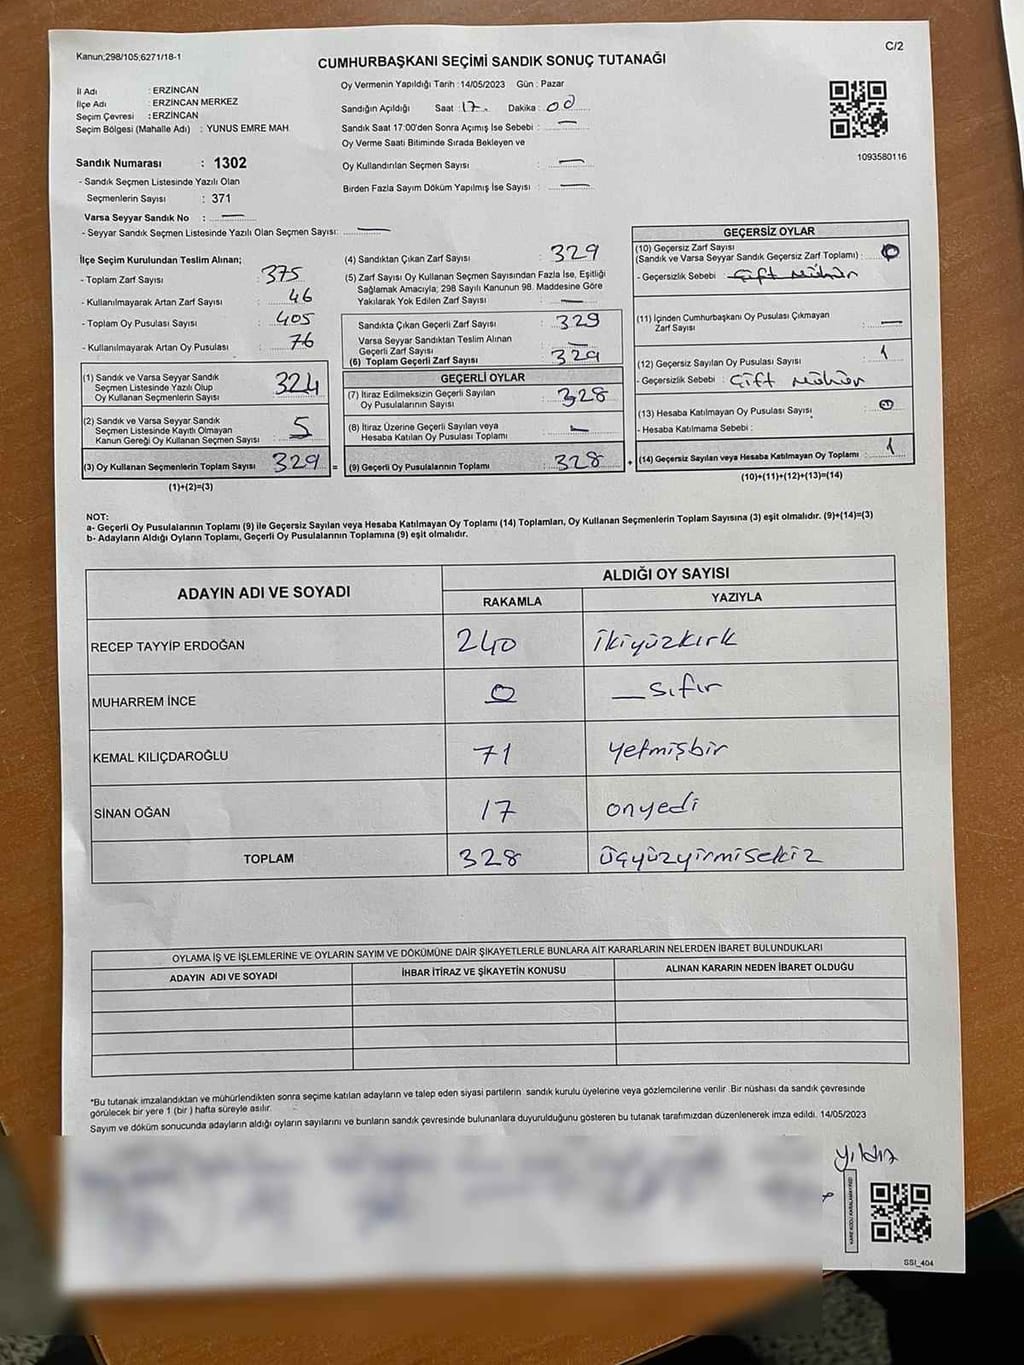 Kanun;298/105;6271/18-1
C/2
CUMHURBAŞKANI SEÇİMİ SANDIK SONUÇ TUTANAĞI
İl Adı : ERZİNCAN
İlçe Adı : ERZİNCAN MERKEZ
Seçim Çevresi : ERZİNCAN
Seçim Bölgesi (Mahalle Adı) : YUNUS EMRE MAH
Sandık Numarası : 1302
- Sandık Seçmen Listesinde Yazılı Olan
Seçmenlerin Sayısı : 371
Varsa Seyyar Sandık No : —
- Seyyar Sandık Seçmen Listesinde Yazılı Olan Seçmen Sayısı: —
Oy Vermenin Yapıldığı Tarih : 14/05/2023 Gün : Pazar
Sandığın Açıldığı Saat : 17. Dakika : 00
Sandık Saat 17:00'den Sonra Açımış İse Sebebi : —
Oy Verme Saati Bitiminde Sırada Bekleyen ve
Oy Kullandırılan Seçmen Sayısı : —
Birden Fazla Sayım Döküm Yapılmış İse Sayısı : —
1093580116
İlçe Seçim Kurulundan Teslim Alınan;
- Toplam Zarf Sayısı : 375
- Kullanılmayarak Artan Zarf Sayısı : 46
- Toplam Oy Pusulası Sayısı : 405
- Kullanılmayarak Artan Oy Pusulası : 76
(1) Sandık ve Varsa Seyyar Sandık
Seçmen Listesinde Yazılı Olup
Oy Kullanan Seçmenlerin Sayısı : 324
(2) Sandık ve Varsa Seyyar Sandık
Seçmen Listesinde Kayıtlı Olmayan
Kanun Gereği Oy Kullanan Seçmen Sayısı : 5
(3) Oy Kullanan Seçmenlerin Toplam Sayısı : 329 =
(1)+(2)=(3)
(4) Sandıktan Çıkan Zarf Sayısı : 329
(5) Zarf Sayısı Oy Kullanan Seçmen Sayısından Fazla İse, Eşitliği
Sağlamak Amacıyla; 298 Sayılı Kanunun 98. Maddesine Göre
Yakılarak Yok Edilen Zarf Sayısı : —
Sandıkta Çıkan Geçerli Zarf Sayısı : 329
Varsa Seyyar Sandıktan Teslim Alınan
Geçerli Zarf Sayısı : —
(6) Toplam Geçerli Zarf Sayısı : 329
GEÇERLİ OYLAR
(7) İtiraz Edilmeksizin Geçerli Sayılan
Oy Pusulalarının Sayısı : 328
(8) İtiraz Üzerine Geçerli Sayılan veya
Hesaba Katılan Oy Pusulası Toplamı : —
(9) Geçerli Oy Pusulalarının Toplamı : 328 +
GEÇERSİZ OYLAR
(10) Geçersiz Zarf Sayısı
(Sandık ve Varsa Seyyar Sandık Geçersiz Zarf Toplamı) : 0
- Geçersizlik Sebebi : Çift Mühür
(11) İçinden Cumhurbaşkanı Oy Pusulası Çıkmayan
Zarf Sayısı : —
(12) Geçersiz Sayılan Oy Pusulası Sayısı : 1
- Geçersizlik Sebebi : Çift Mühür
(13) Hesaba Katılmayan Oy Pusulası Sayısı :
- Hesaba Katılmama Sebebi :
(14) Geçersiz Sayılan veya Hesaba Katılmayan Oy Toplamı : 1
(10)+(11)+(12)+(13)=(14)
NOT:
a- Geçerli Oy Pusulalarının Toplamı (9) ile Geçersiz Sayılan veya Hesaba Katılmayan Oy Toplamı (14) Toplamları, Oy Kullanan Seçmenlerin Toplam Sayısına (3) eşit olmalıdır. (9)+(14)=(3)
b- Adayların Aldığı Oyların Toplamı, Geçerli Oy Pusulalarının Toplamına (9) eşit olmalıdır.
ADAYIN ADI VE SOYADI
ALDIĞI OY SAYISI
RAKAMLA YAZIYLA
RECEP TAYYİP ERDOĞAN 240 ikiyüzkırk
MUHARREM İNCE 0 — sıfır
KEMAL KILIÇDAROĞLU 71 yetmişbir
SİNAN OĞAN 17 onyedi
TOPLAM 328 üçyüzyirmisekiz
OYLAMA İŞ VE İŞLEMLERİNE VE OYLARIN SAYIM VE DÖKÜMÜNE DAİR ŞİKAYETLERLE BUNLARA AİT KARARLARIN NELERDEN İBARET BULUNDUKLARI
ADAYIN ADI VE SOYADI İHBAR İTİRAZ VE ŞİKAYETİN KONUSU ALINAN KARARIN NEDEN İBARET OLDUĞU
*Bu tutanak imzalandıktan ve mühürlendikten sonra seçime katılan adayların ve talep eden siyasi partilerin sandık kurulu üyelerine veya gözlemcilerine verilir. Bir nüshası da sandık çevresinde
görülecek bir yere 1 (bir ) hafta süreyle asılır.
Sayım ve döküm sonucunda adayların aldığı oyların sayılarını ve bunların sandık çevresinde bulunanlara duyurulduğunu gösteren bu tutanak tarafımızdan düzenlenerek imza edildi. 14/05/2023
yıldız
KARE KODU KARALAMAYINIZ!
SSI_404